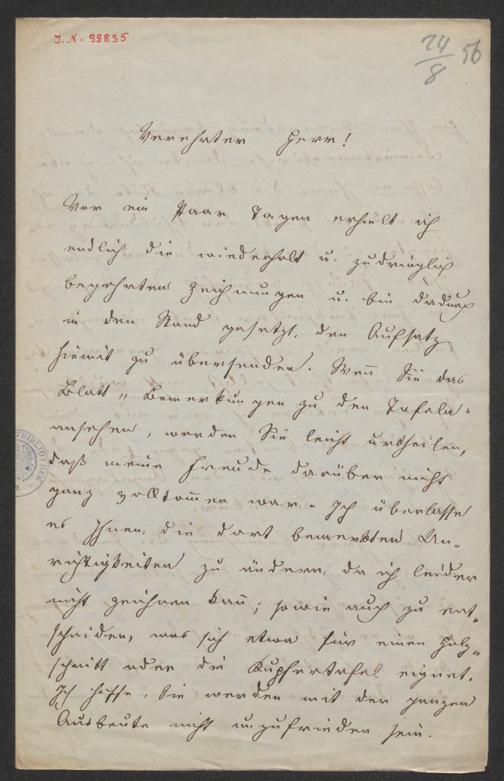 J.N. 99835
24/8 56
Verehrter Herr!
Vor ein Paar Tagen erhielt ich
endlich die wiederholt u. zudringlich
begehrten Zeichnungen u. bin dadurch
in den Stand gesetzt, den Aufsatz
hiemit zu übersenden. Wenn Sie das
Blatt „Bemerkungen zu den Tafeln"
ansehen, werden Sie leicht urtheilen,
daß meine Freude darüber nicht
ganz vollkommen war. Ich überlasse
es Ihnen, die dort bemerkten Un-
richtigkeiten zu ändern, da ich leider
nicht zeichnen kann; sowie auch zu ent-
scheiden, was sich etwa für einen Holz-
schnitt oder die Kupfertafel eignet.
Ich hoffe, Sie werden mit der ganzen
Ausbeute nicht unzufrieden sein.